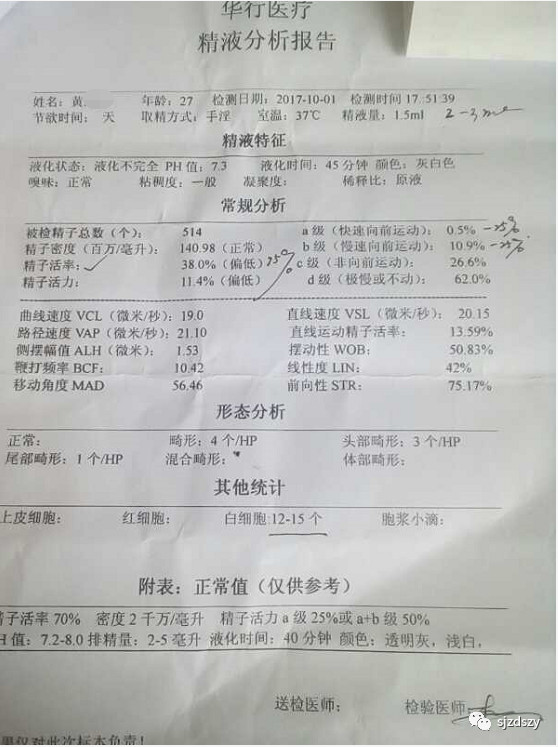 华行医疗
精液分析报告
姓名：黄 年龄：27 检测日期：2017-10-01 检测时间 17:51:39
节欲时间： 天 取精方式：手淫 室温：37℃ 精液量：1.5ml 2-3ml
精液特征
液化状态：液化不完全 PH 值：7.3 液化时间：45 分钟 颜色：灰白色
嗅味：正常 粘稠度：一般 凝聚度： 稀释比：原液
常规分析
被检精子总数（个）： 514 a 级（快速向前运动）： 0.5% -25%
精子密度（百万/毫升）： 140.98（正常） b 级（慢速向前运动）： 10.9% -25%
精子活率： 38.0%（偏低） 75% c 级（非向前运动）： 26.6%
精子活力： 11.4%（偏低） d 级（极慢或不动）： 62.0%
曲线速度 VCL（微米/秒）：19.0 直线速度 VSL（微米/秒）： 20.15
路径速度 VAP（微米/秒）：21.10 直线运动精子活率： 13.59%
侧摆幅值 ALH（微米）： 1.53 摆动性 WOB： 50.83%
鞭打频率 BCF： 10.42 线性度 LIN： 42%
移动角度 MAD 56.46 前向性 STR： 75.17%
形态分析
正常： 畸形：4 个/HP 头部畸形：3 个/HP
尾部畸形：1 个/HP 混合畸形： 体部畸形：
其他统计
上皮细胞： 红细胞： 白细胞:12-15 个 胞浆小滴：
附表：正常值（仅供参考）
精子活率 70% 密度 2 千万/毫升 精子活力 a 级 25%或 a+b 级 50%
PH 值：7.2-8.0 排精量：2-5 毫升 液化时间：40 分钟 颜色：透明灰，浅白，
送检医师： 检验医师
sjzdszy
果仅对此次标本负责！